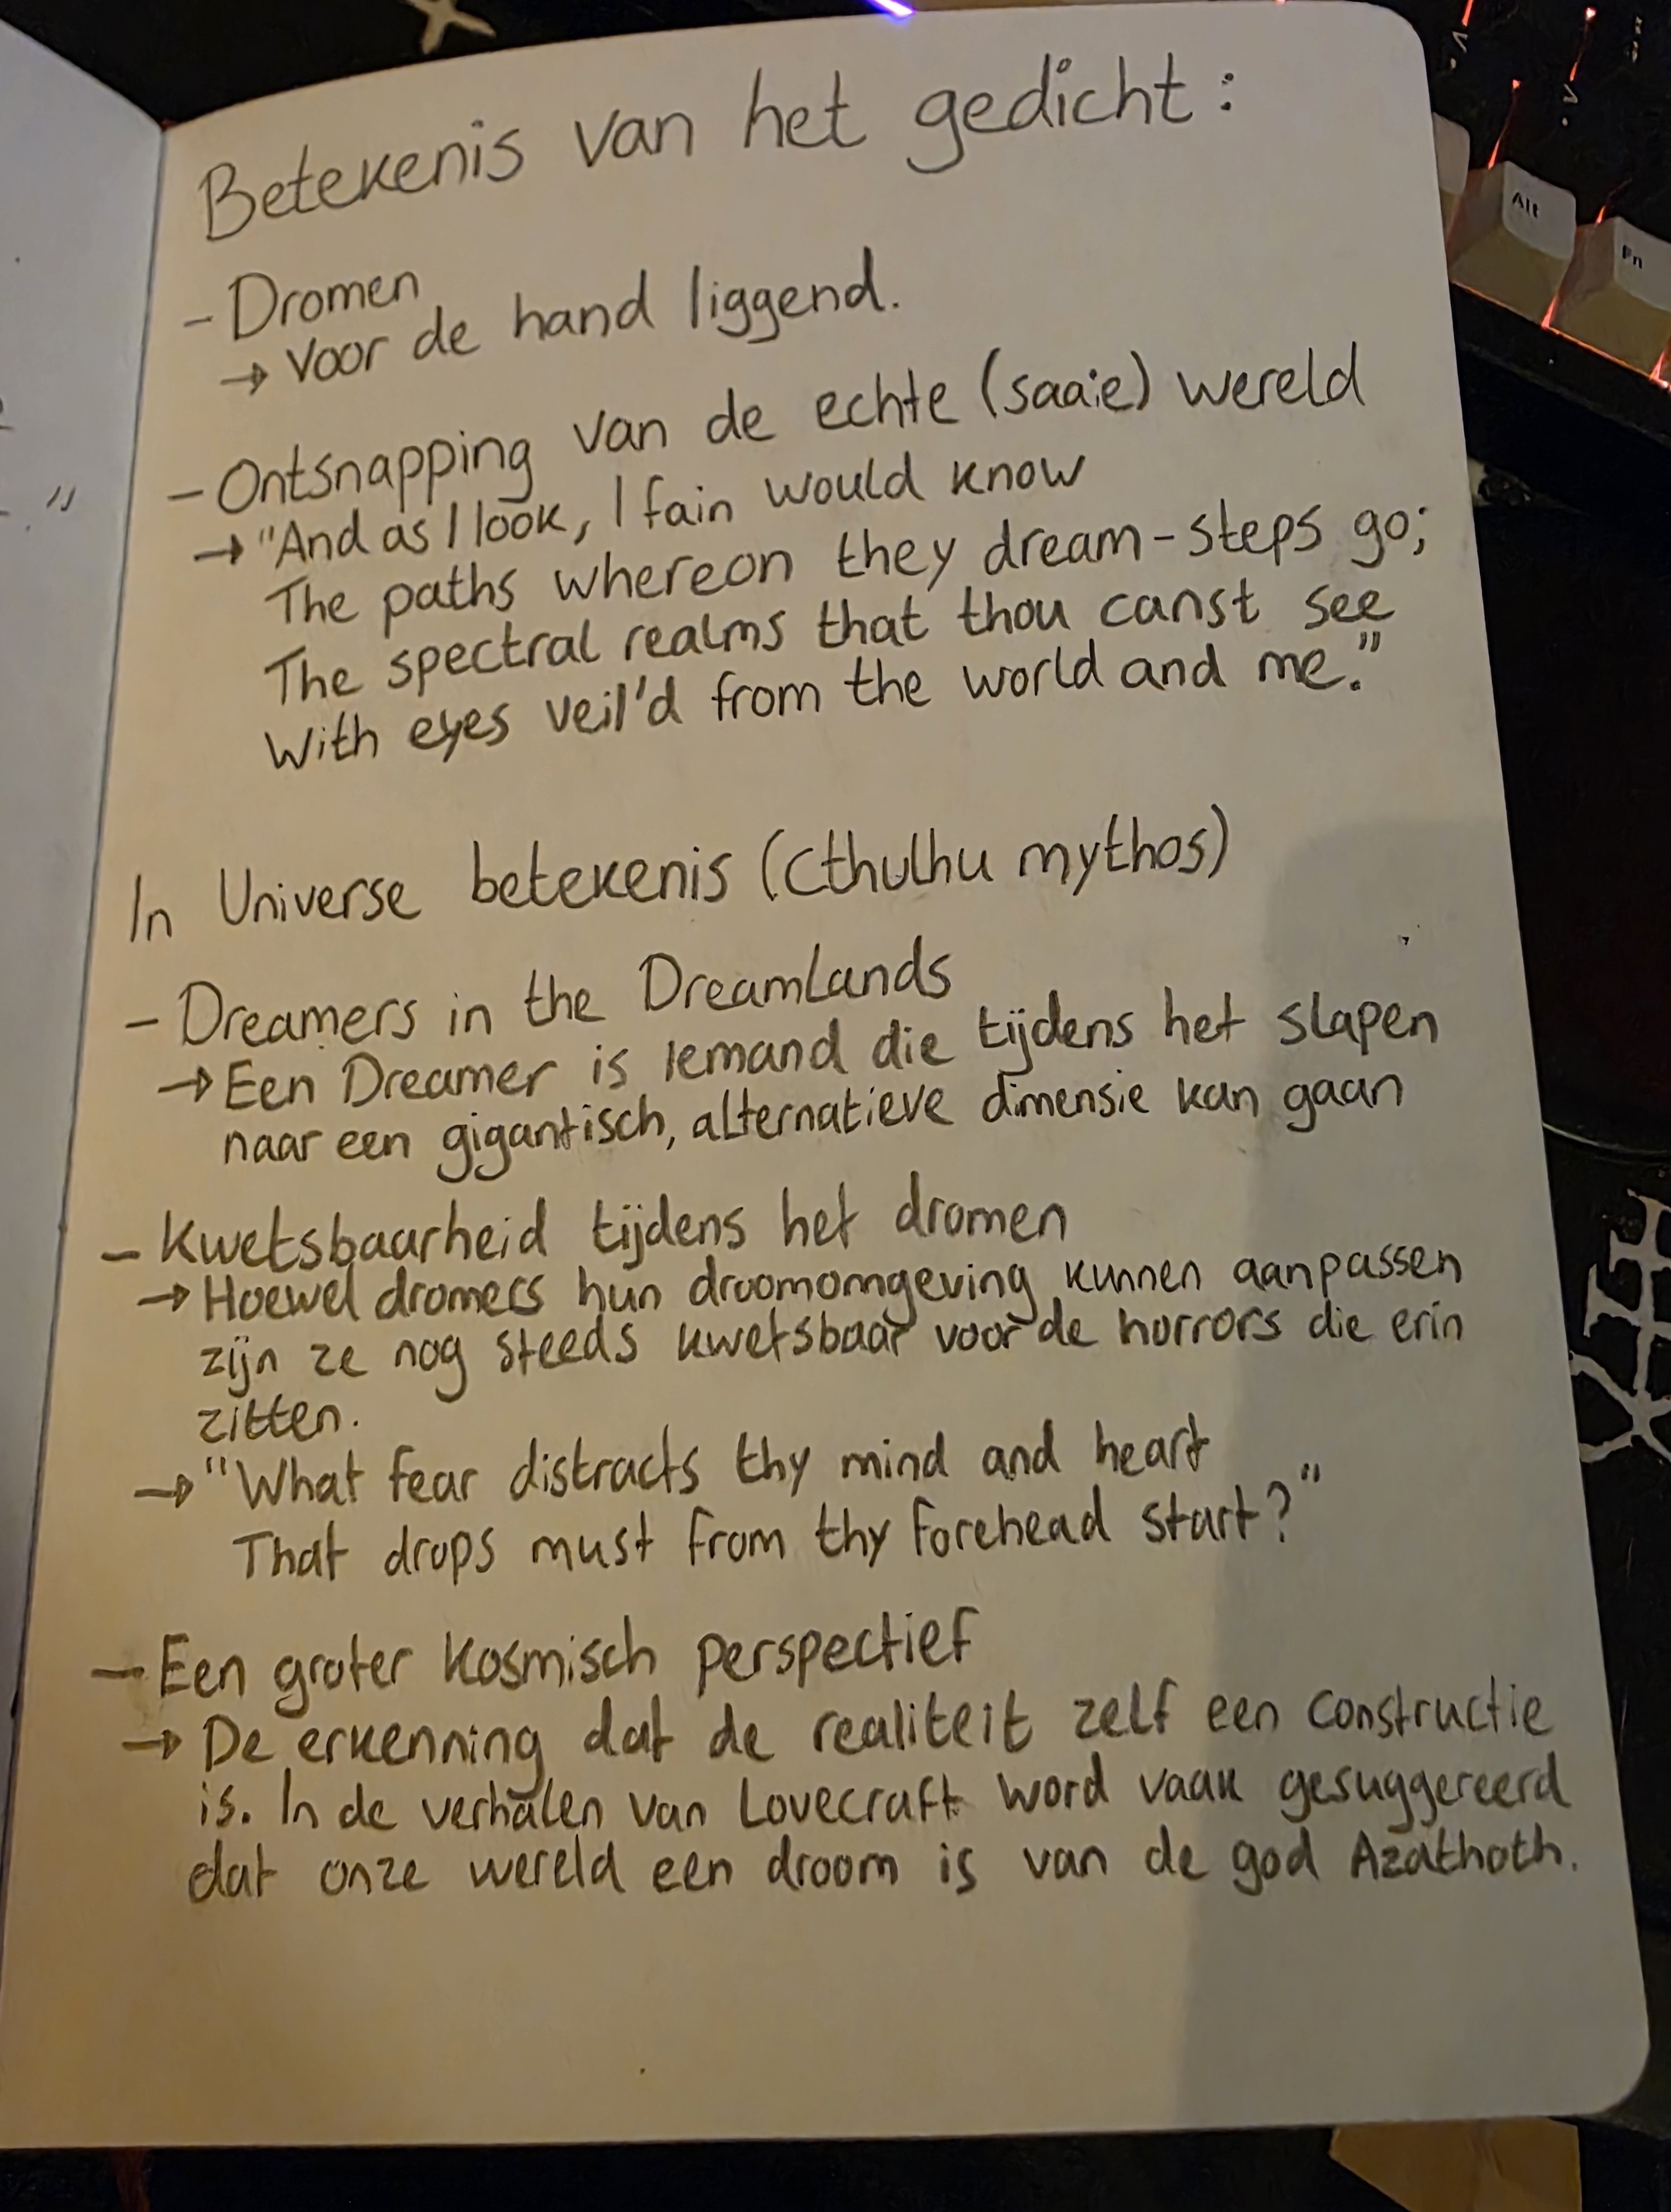 Betekenis van het gedicht:
- Dromen
→ Voor de hand liggend.
- Ontsnapping van de echte (saaie) wereld
→ "And as I look, I fain would know
The paths whereon they dream-steps go;
The spectral realms that thou canst see
With eyes veil'd from the world and me."
In Universe betekenis (Cthulhu mythos)
- Dreamers in the DreamLands
→ Een Dreamer is iemand die tijdens het slapen
naar een gigantisch, alternatieve dimensie kan gaan
- Kwetsbaarheid tijdens het dromen
→ Hoewel dromers hun droomomgeving kunnen aanpassen
zijn ze nog steeds kwetsbaar voor de horrors die erin
zitten.
→ "What fear distracts thy mind and heart
That drops must from thy forehead start?"
- Een groter kosmisch perspectief
→ De erkenning dat de realiteit zelf een constructie
is. In de verhalen van Lovecraft word vaak gesuggereerd
dat onze wereld een droom is van de god Azathoth.
"
Alt
Fn